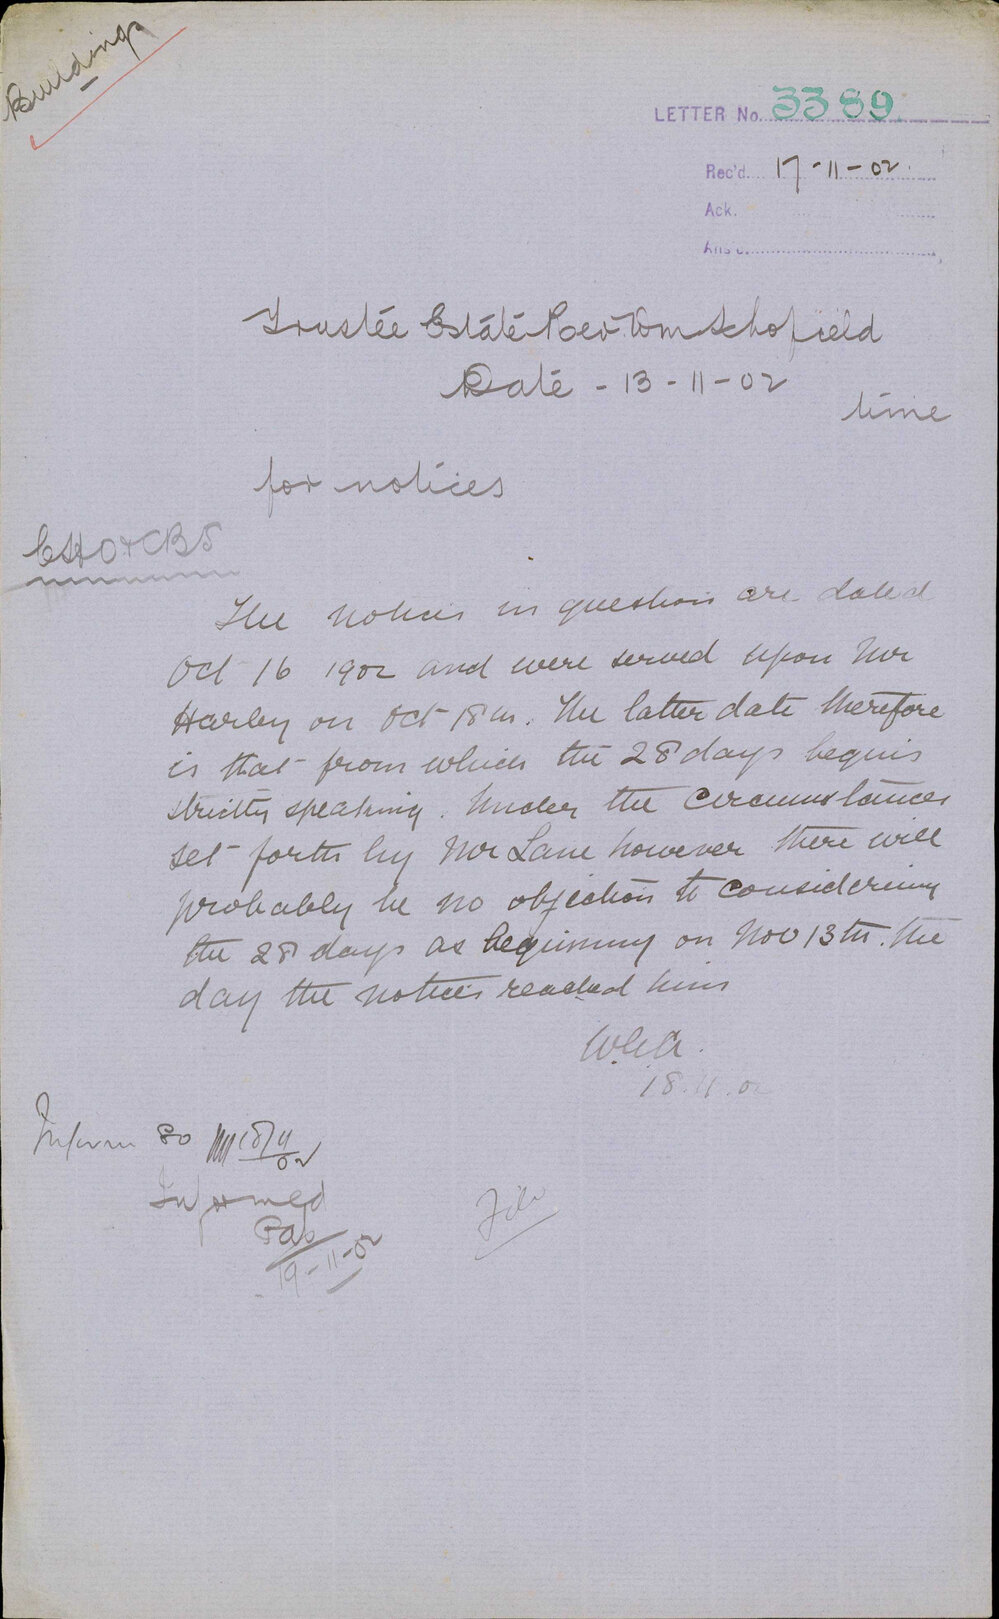 Buildings
LETTER No. 3389
Rec'd. 17-11-02.
Ack.
Ans'd.
Trustee Estate Rev Wm Schofield
Date - 13-11-02
time
for notices
CHO & CBS
The notices in question are dated
Oct 16 1902 and were served upon Mr
Harley on Oct 18th. The latter date therefore
is that from which the 28 days begins
strictly speaking. Under the circumstances
set forth by Mr Lane however there will
probably be no objection to considering
the 28 days as beginning on Nov 13th. the
day the notices reached him
18.11.02
Inform 18/11/02
Informed
19-11-02
File